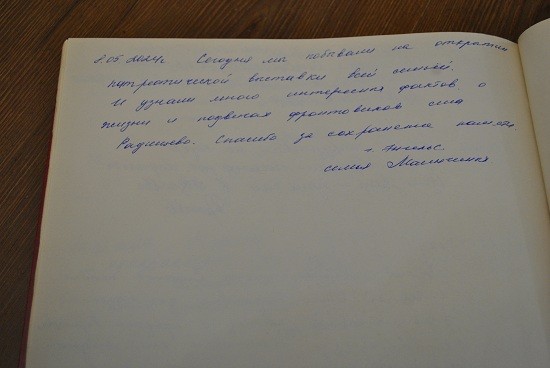 8.05.2024г Сегодня мы побывали на открытии
патриотической выставки всей семьёй.
И узнали много интересных фактов о
жизни и подвигах фронтовиков села
Радищево. Спасибо за сохранение памяти
г. Энгельс.
семья